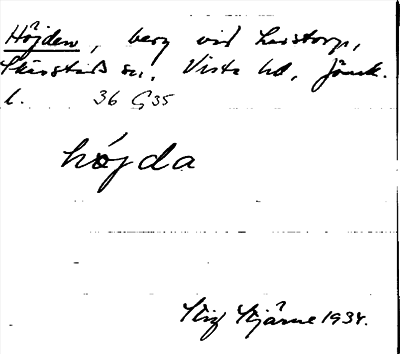 Höjden, berg vid Lustorp,
Skärstads sn, Vista hd, Jönk.
l. 36 G 35
höjda
Stig Stjärne 1934.